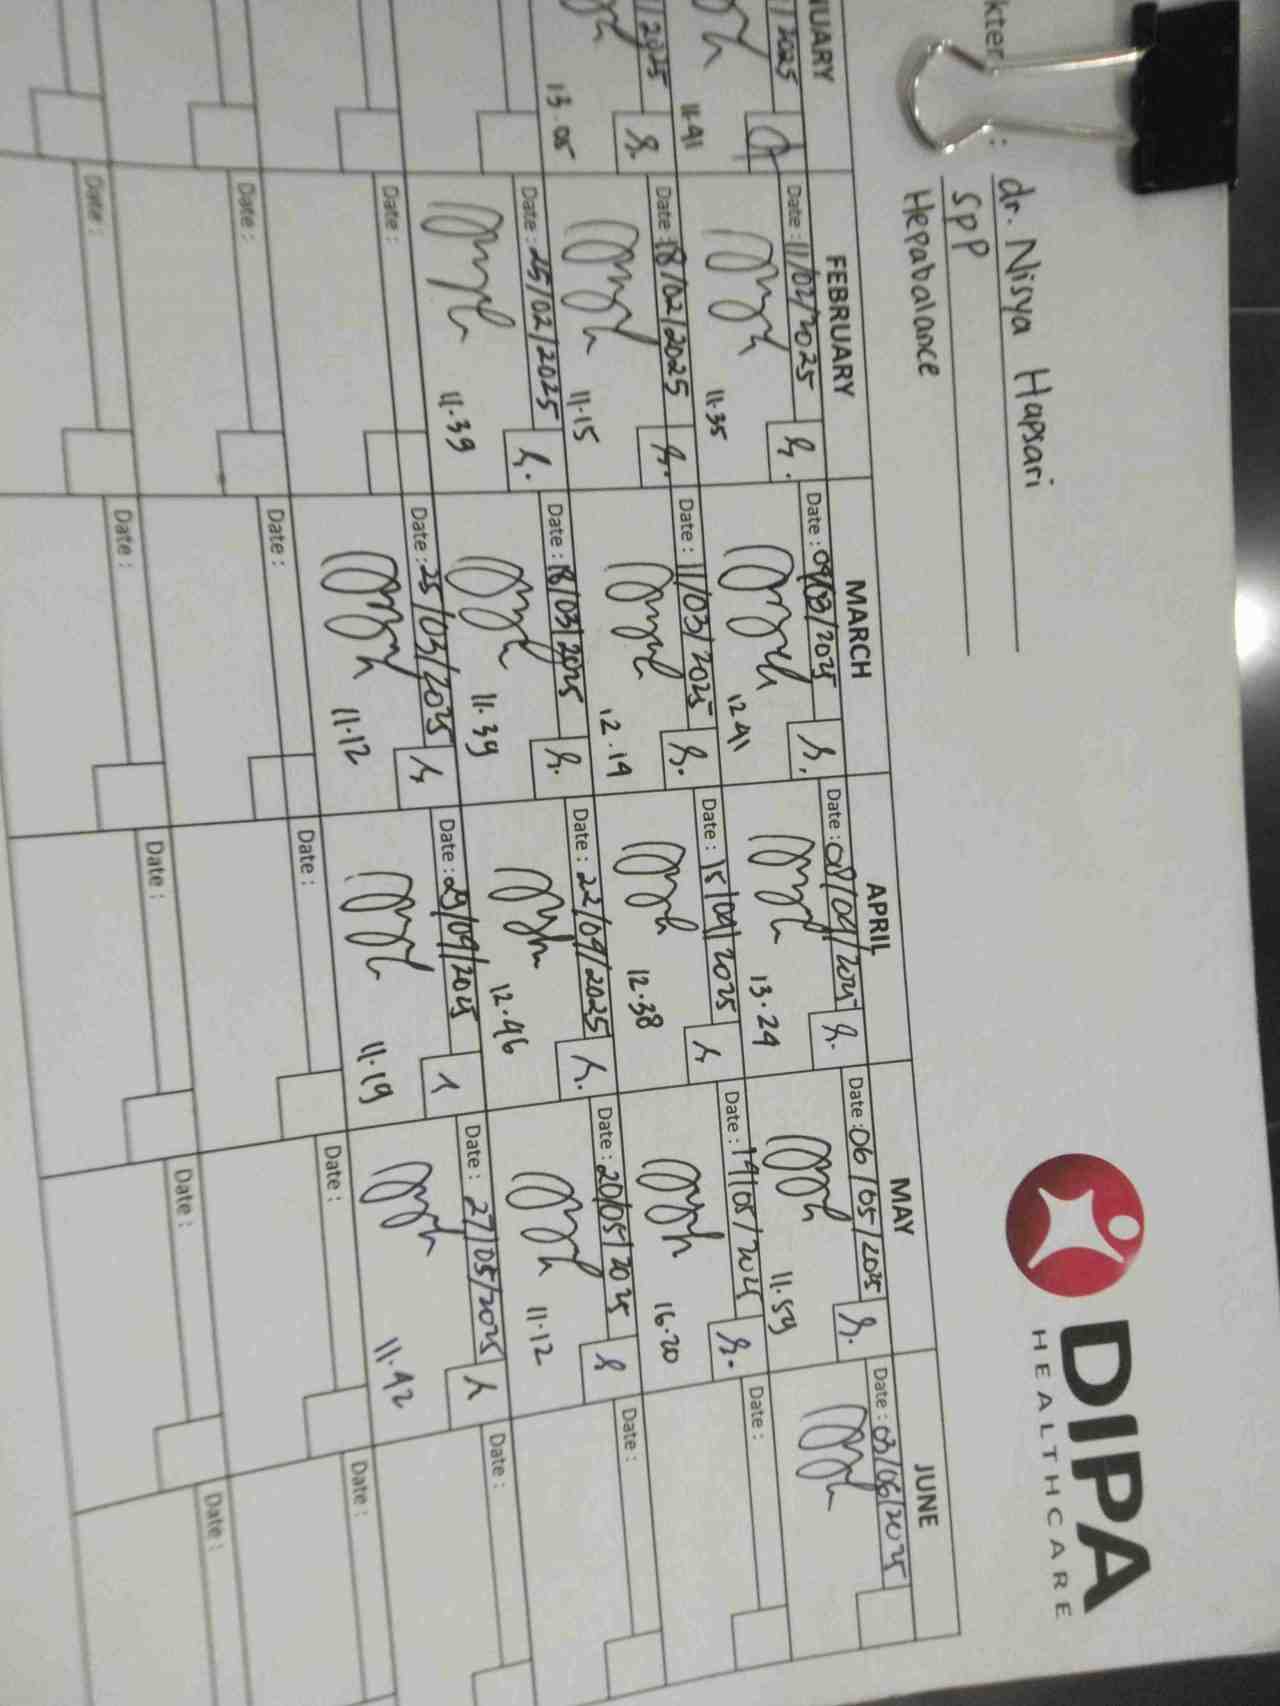 DIPA
HEALTHCARE
kter : dr. Nisya Hapsari
SpP
Hepabalance
NUARY
FEBRUARY
MARCH
APRIL
MAY
JUNE
/2025
11.41
Date : 11/02/2025
11.35
Date : 04/03/2025
12.41
Date : 08/04/2025
13.24
Date : 06/05/2025
11.59
Date : 03/06/2025
/2025
13.05
Date : 18/02/2025
11.15
Date : 11/03/2025
12.14
Date : 15/04/2025
12.38
Date : 14/05/2025
16.20
Date :
Date : 25/02/2025
11.39
Date : 18/03/2025
11.39
Date : 22/04/2025
12.46
Date : 20/05/2025
11.12
Date :
Date :
Date : 25/03/2025
11.12
Date : 29/04/2025
11.19
Date : 27/05/2025
11.42
Date :
Date :
Date :
Date :
Date :
Date :
Date :
Date :
Date :
Date :